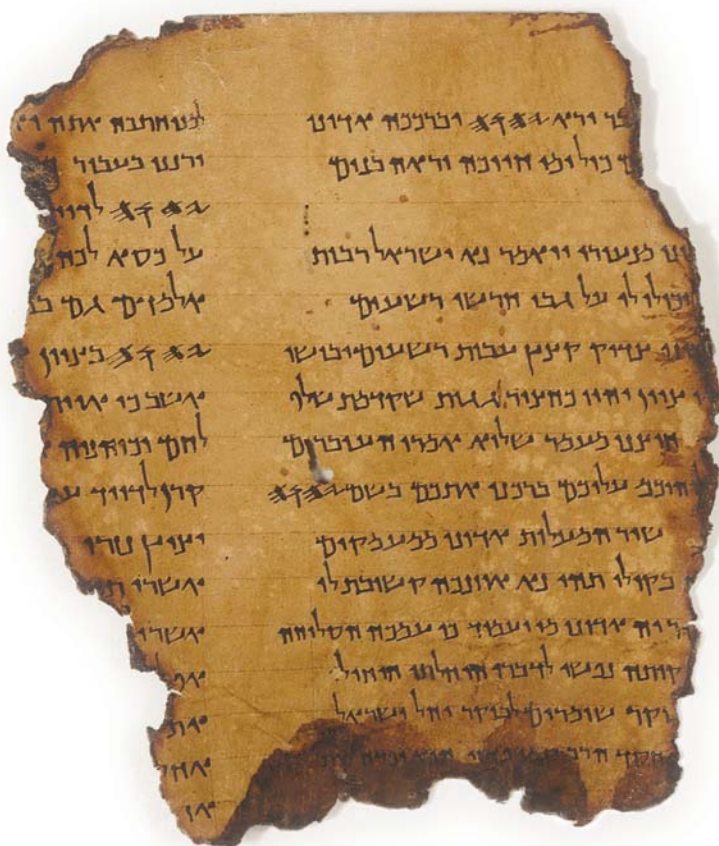 ירא 𐤉𐤄𐤅𐤄 יברככה אדוני
כול ימי חייכה וראה בנים
מנעורי ויאמר נא ישראל רבות
יוכלו לי על גבי חרשו רשעים
צדיק קצץ עבות רשעים יבושו
ציון יהיו כחציר גגות שקדמת שלף
חוצנו מעמר שלוא אמרו העוברים
עליכם ברכנו אתכם בשם 𐤉𐤄𐤅𐤄
שיר המעלות אדוני ממעמקים
בקולי תהי נא אוזנכה קשובת לי
יה אדוני מי יעמוד כי עמכה הסליחה
קותה נפשי לדברו הוחלתי הוחילי
שומרים לבוקר יחל ישראל
הוא יפדה
למנוחתכה אתה
ירננו בעבור
𐤉𐤄𐤅𐤄 לדויד
על כסא לכה
אלמדם גם
𐤉𐤄𐤅𐤄 בציון
אשב כי
לחם וכוהניה
קרן לדויד
יציץ נזרו
אשרי
אשרי